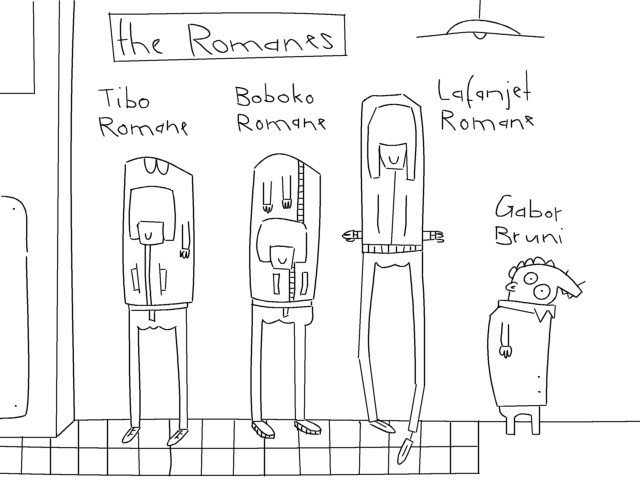 the Romanes
Tibo
Romane
Boboko
Romane
Lafanjet
Romane
Gabor
Bruni